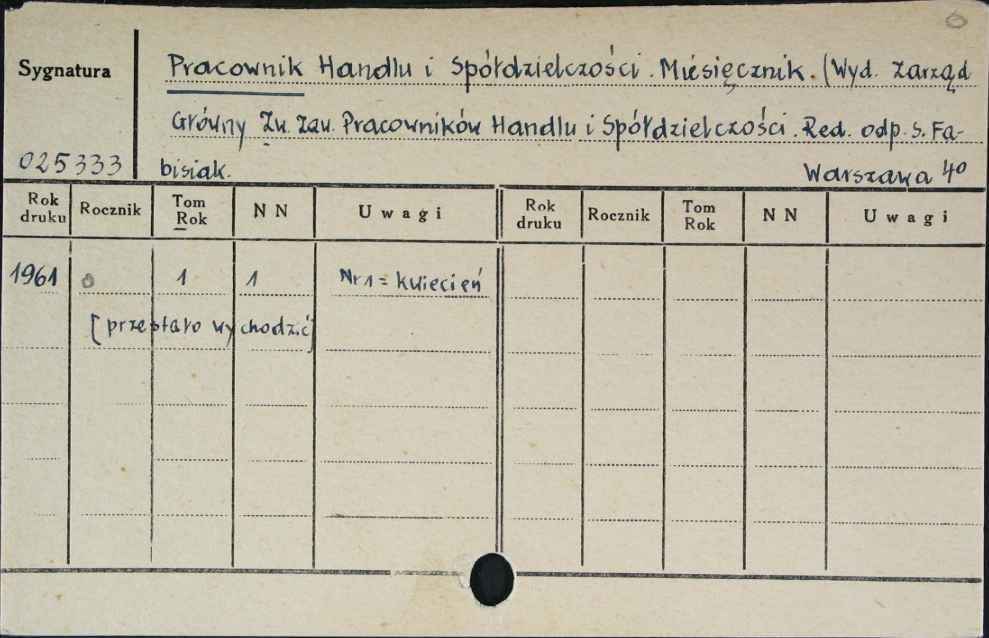 Sygnatura
Pracownik Handlu i Spółdzielczości. Miesięcznik. (Wyd. Zarząd
Główny Zw. Zaw. Pracowników Handlu i Spółdzielczości. Red. odp. S. Fa-
025333 bisiak. Warszawa 4°
Rok druku Rocznik Tom Rok N N Uwagi Rok druku Rocznik Tom Rok N N Uwagi
1961 0 1 1 Nr 1 = kwiecień
[przestało wychodzić]